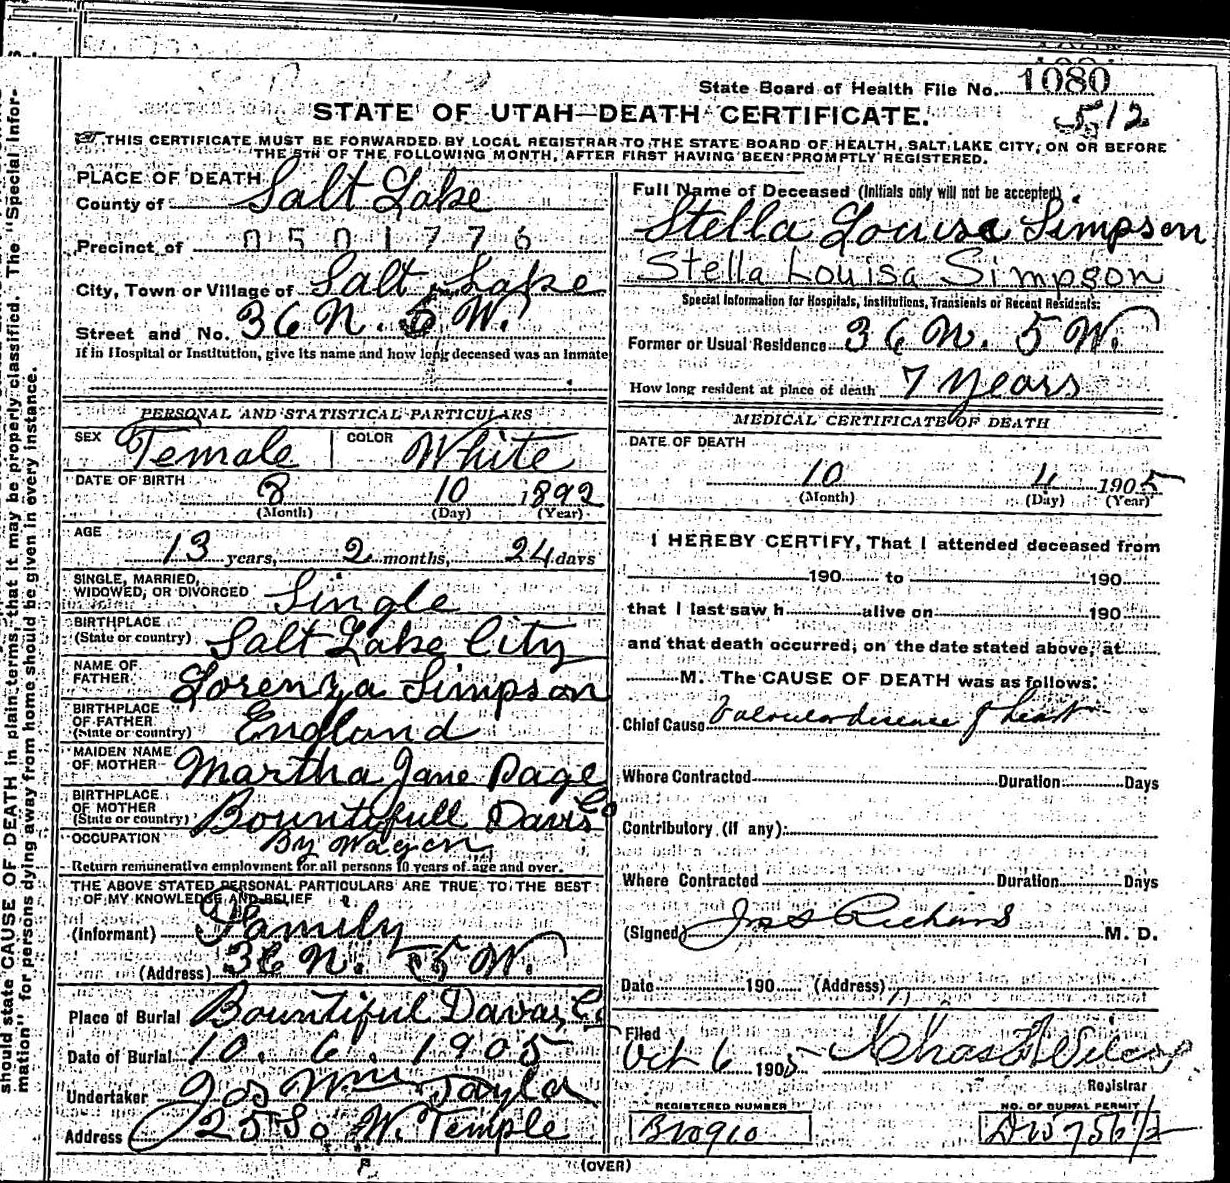 State Board of Health File No. 1080
512
STATE OF UTAH—DEATH CERTIFICATE.
THIS CERTIFICATE MUST BE FORWARDED BY LOCAL REGISTRAR TO THE STATE BOARD OF HEALTH, SALT LAKE CITY, ON OR BEFORE
THE 5TH OF THE FOLLOWING MONTH, AFTER FIRST HAVING BEEN PROMPTLY REGISTERED.
PLACE OF DEATH
County of Salt Lake
Precinct of 0501776
City, Town or Village of Salt Lake
Street and No. 36 N. 5 W.
If in Hospital or Institution, give its name and how long deceased was an Inmate
PERSONAL AND STATISTICAL PARTICULARS
SEX Female COLOR White
DATE OF BIRTH 8 10 1892
(Month) (Day) (Year)
AGE
13 years, 2 months, 24 days
SINGLE, MARRIED,
WIDOWED, OR DIVORCED Single
BIRTHPLACE
(State or country) Salt Lake City
NAME OF
FATHER Lorenza Simpson
BIRTHPLACE
OF FATHER
(State or country) England
MAIDEN NAME
OF MOTHER Martha Jane Page
BIRTHPLACE
OF MOTHER
(State or country) Bountifull Davis Co
OCCUPATION By Wagon
Return remunerative employment for all persons 10 years of age and over.
THE ABOVE STATED PERSONAL PARTICULARS ARE TRUE TO THE BEST
OF MY KNOWLEDGE AND BELIEF
(Informant) Family
(Address) 36 N. 5 W.
Place of Burial Bountiful Davis Co
Date of Burial 10. 6. 1905
Undertaker Jos Wm Taylor
Address 25 So W. Temple
Full Name of Deceased (Initials only will not be accepted)
Stella Louisa Simpson
Stella Louisa Simpson
Special Information for Hospitals, Institutions, Transients or Recent Residents:
Former or Usual Residence 36 N. 5 W.
How long resident at place of death 7 Years
MEDICAL CERTIFICATE OF DEATH
DATE OF DEATH
10 4 1905
(Month) (Day) (Year)
I HEREBY CERTIFY, That I attended deceased from
190 to 190
that I last saw h alive on 190
and that death occurred, on the date stated above, at
M. The CAUSE OF DEATH was as follows:
Chief Cause Valvular disease of heart
Where Contracted Duration Days
Contributory (if any):
Where Contracted Duration Days
(Signed) Jos S Richards M. D.
Date 190 (Address)
Filed
Oct 6 1905
Registrar
REGISTERED NUMBER
NO. OF BURIAL PERMIT
(OVER)
should state CAUSE OF DEATH in plain terms, that it may be properly classified. The "Special Infor-
mation" for persons dying away from home should be given in every instance.